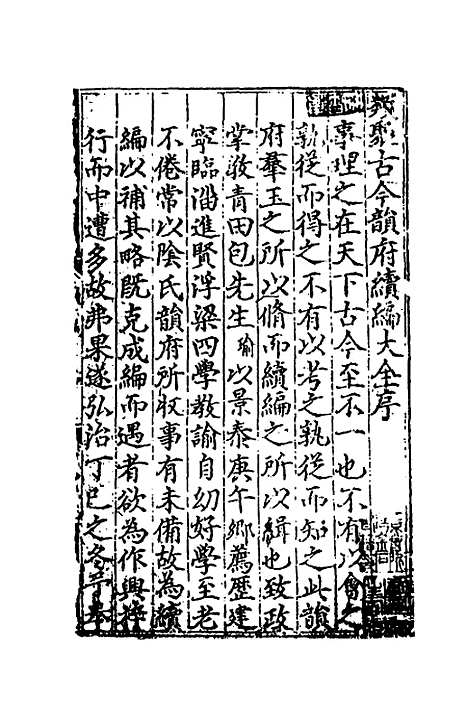 類聚古今韻府續編大全序
事理之在天下古今至不一也不有以會之
孰從而得之不有以考之孰從而知之此韻
府羣玉之所以脩而續編之所以緝也致政
掌教青田包先生瑜以景泰庚午鄉薦歷建
寧臨淄進賢浮梁四學教諭自幼好學至老
不倦常以陰氏韻府所收事有未備故為續
編以補其略既克成編而遇者欲為作興梓
行而中遭多故弗果遂弘治丁巳之冬予奉